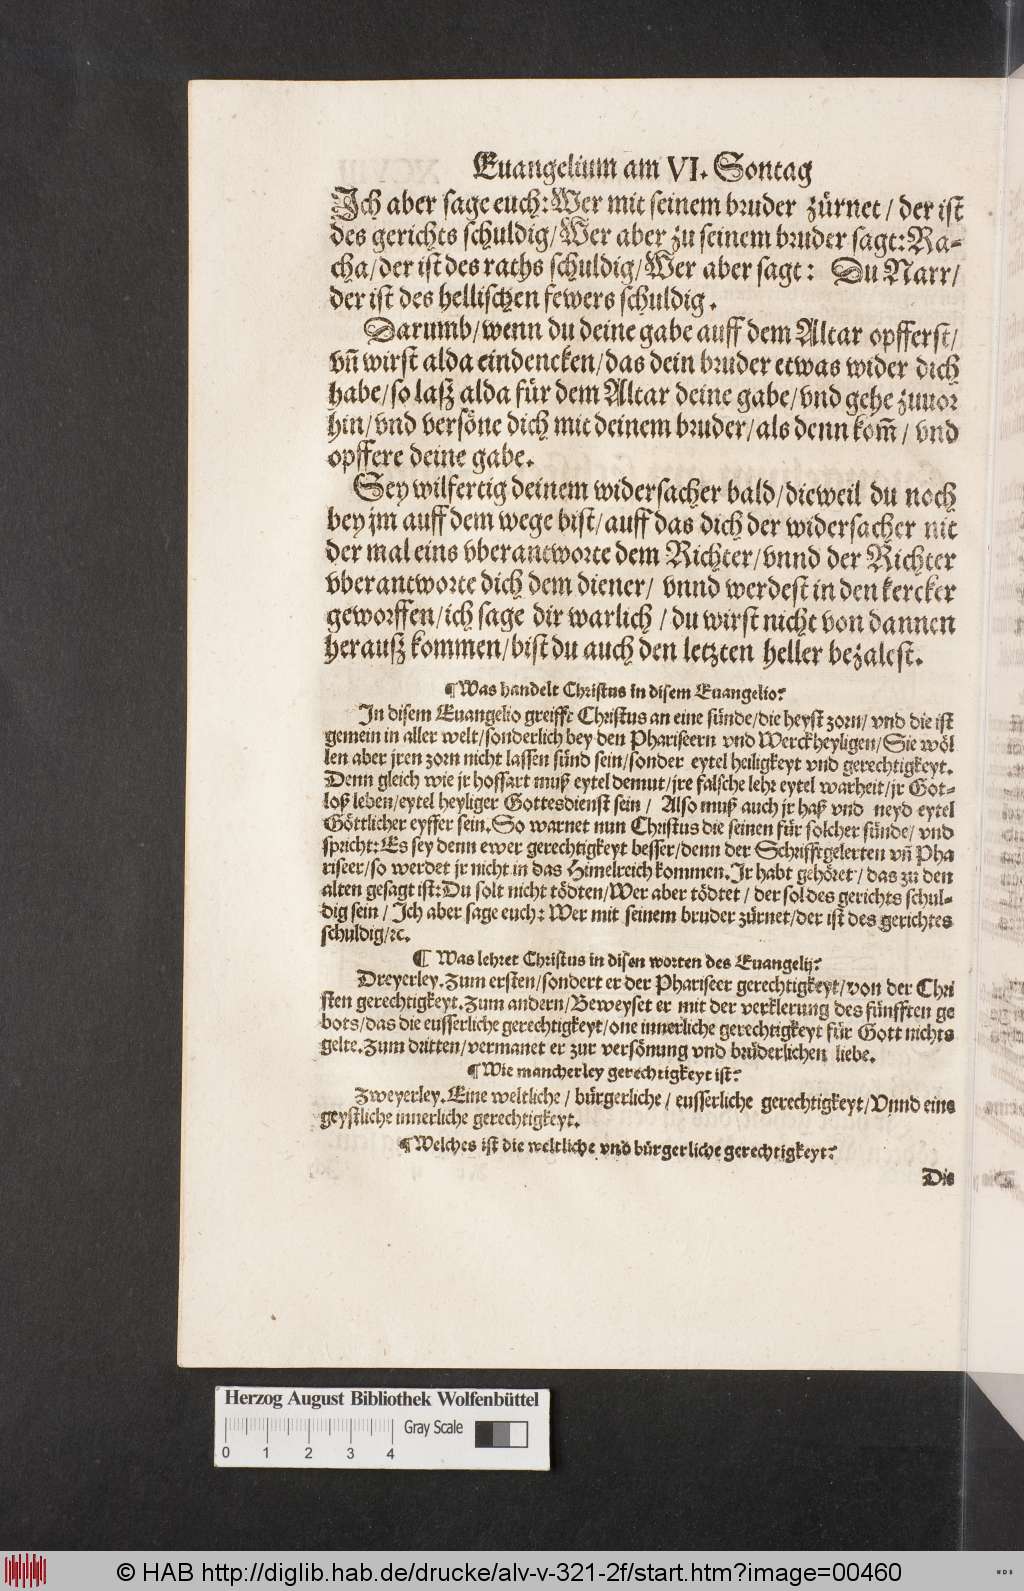 Euangelium am VI. Sontag
Ich aber sage euch: Wer mit seinem bruder zürnet / der ist
des gerichts schuldig / Wer aber zu seinem bruder sagt: Ra-
cha / der ist des raths schuldig / Wer aber sagt: Du Narr /
der ist des hellischen fewers schuldig.
Darumb / wenn du deine gabe auff dem Altar opfferst /
vñ wirst alda eindencken / das dein bruder etwas wider dich
habe / so laß alda für dem Altar deine gabe / vnd gehe zuuor
hin / vnd versöne dich mit deinem bruder / als denn kom̄ / vnd
opffere deine gabe.
Sey wilfertig deinem widersacher bald / dieweil du noch
bey jm auff dem wege bist / auff das dich der widersacher nit
der mal eins vberantworte dem Richter / vnnd der Richter
vberantworte dich dem diener / vnnd werdest in den kercker
geworffen / ich sage dir warlich / du wirst nicht von dannen
herauß kommen / bist du auch den letzten heller bezalest.
¶ Was handelt Christus in disem Euangelio?
In disem Euangelio greifft Christus an eine sünde / die heyst zorn / vnd die ist
gemein in aller welt / sonderlich bey den Phariseern vnd Werckheyligen / Sie wöl
len aber jren zorn nicht lassen sünd sein / sonder eytel heiligkeyt vnd gerechtigkeyt.
Denn gleich wie jr hoffart muß eytel demut / jre falsche lehr eytel warheit / jr Got-
loß leben / eytel heyliger Gottesdienst sein / Also muß auch jr haß vnd neyd eytel
Göttlicher eyffer sein. So warnet nun Christus die seinen für solcher sünde / vnd
spricht: Es sey denn ewer gerechtigkeyt besser / denn der Schrifftgelerten vñ Pha
riseer / so werdet jr nicht in das Himelreich kommen. Ir habt gehöret / das zu den
alten gesagt ist: Du solt nicht tödten / Wer aber tödtet / der sol des gerichts schul-
dig sein / Ich aber sage euch: Wer mit seinem bruder zürnet / der ist des gerichtes
schuldig / ꝛc.
¶ Was lehret Christus in disen worten des Euangelij?
Dreyerley. Zum ersten / sondert er der Phariseer gerechtigkeyt / von der Chri
sten gerechtigkeyt. Zum andern / Beweyset er mit der verklerung des fünfften ge
bots / das die eusserliche gerechtigkeyt / one innerliche gerechtigkeyt für Gott nichts
gelte. Zum dritten / vermanet er zur versönung vnd brüderlichen liebe.
¶ Wie mancherley gerechtigkeyt ist?
Zweyerley. Eine weltliche / bürgerliche / eusserliche gerechtigkeyt / Vnnd eine
geystliche innerliche gerechtigkeyt.
¶ Welches ist die weltliche vnd bürgerliche gerechtigkeyt?
Die
Herzog August Bibliothek Wolfenbüttel
Gray Scale
0 1 2 3 4
© HAB http://diglib.hab.de/drucke/alv-v-321-2f/start.htm?image=00460